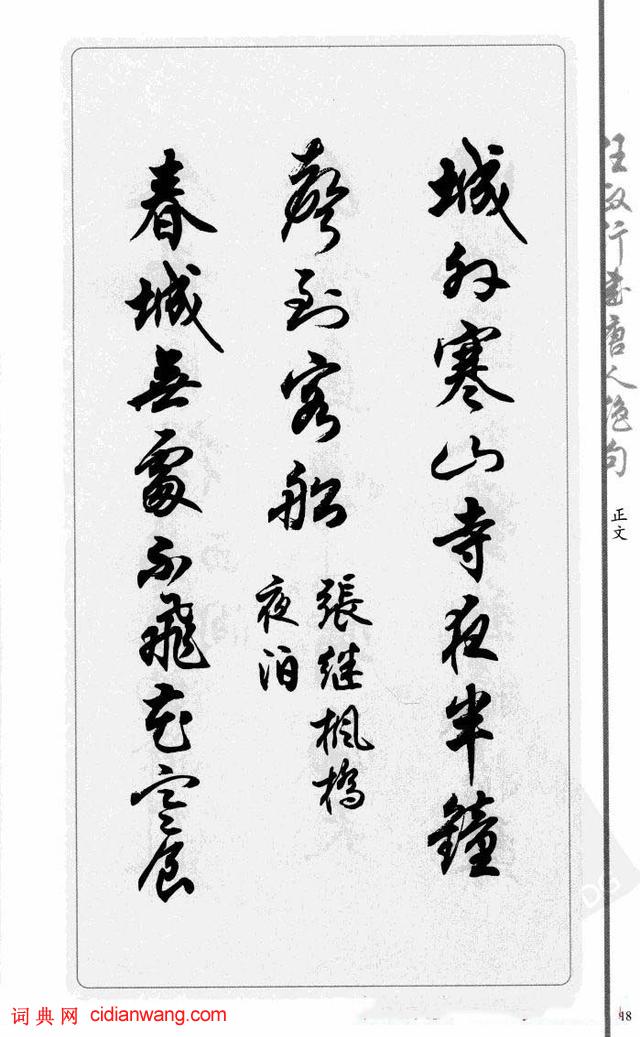 城外寒山寺夜半鐘
聲到客船
張继楓橋
夜泊
春城無處不飛花寒食
任政行書唐人绝句
正文
词典网 cidianwang.com
DG